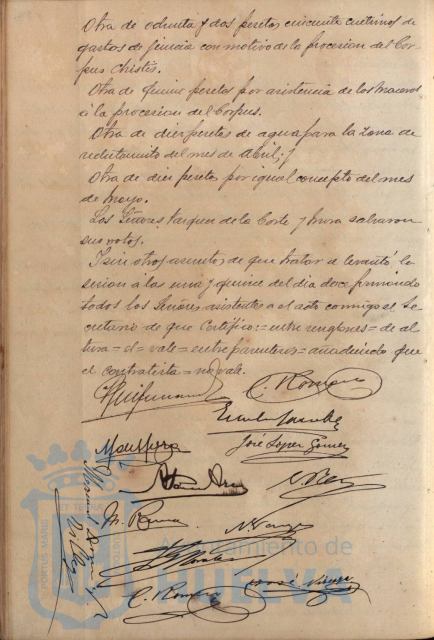 Otra de ochenta y dos pesetas cincuenta centimos de
gastos de fiuncia con motivo de la procesion del Cor-
pus Christi.
Otra de quince pesetas por asistencia de los maceros
á la procesion del Corpus.
Otra de diez pesetas de agua para la Zona de
reclutamito del mes de Abril; y
Otra de diez pesetas por igual concepto del mes
de Mayo.
Los Señores Vazquez de la Corte y Mora salvaron
sus votos.
Y sin otros asuntos de que tratar se levantó la
sesion á las una y quince del dia doce firmando
todos los Señores asistentes a el acto conmigo el Se-
cretario de que Certifico: = entre renglones = de al-
tura = el = vale = entre parentesis = que
el contratista = no vale.
C. Romero
José Lopez Gomez
M. Rama
C. Romero
José
PORTUS MARIS
ET TERRAE
Ayuntamiento de
HUELVA